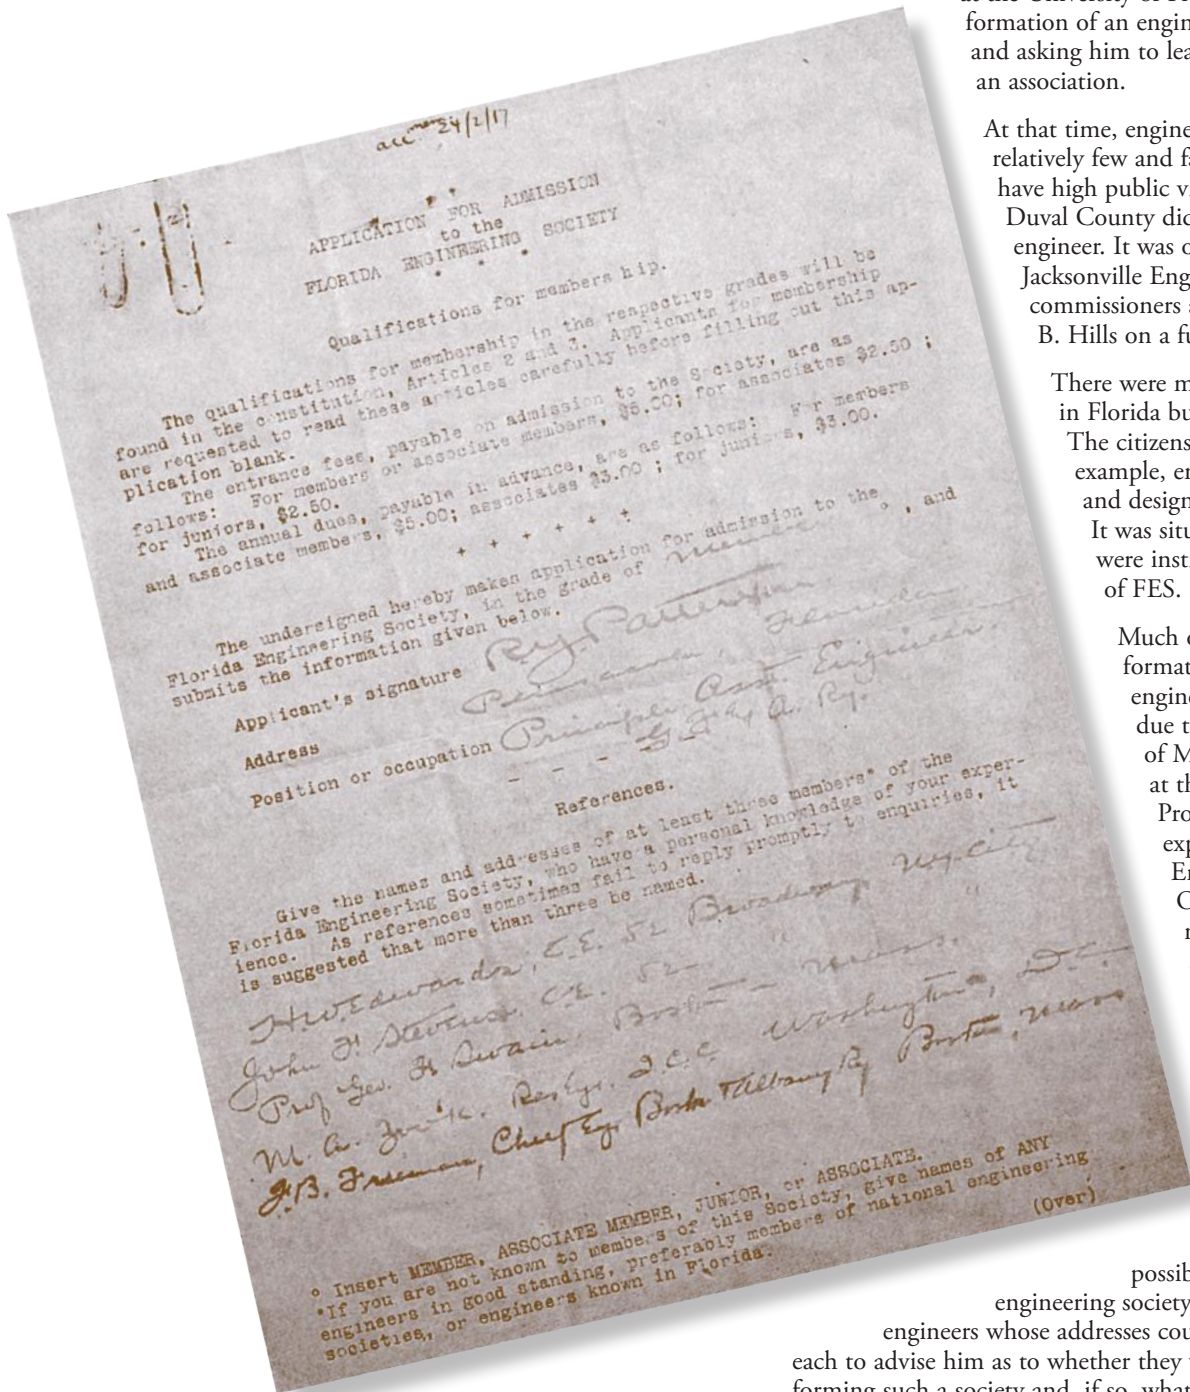 acc. mem 24/2/17
APPLICATION FOR ADMISSION
to the
FLORIDA ENGINEERING SOCIETY
Qualifications for membership.
The qualifications for membership in the respective grades will be
found in the constitution, Articles 2 and 3. Applicants for membership
are requested to read these articles carefully before filling out this ap-
plication blank.
The entrance fees, payable on admission to the Society, are as
follows: For members or associate members, $5.00; for associates $2.50 ;
for juniors, $2.50.
The annual dues, payable in advance, are as follows: For members
and associate members, $5.00; associates $3.00 ; for juniors, $3.00.
+ + + + + +
The undersigned hereby makes application for admission to the
Florida Engineering Society, in the grade of Member ° , and
submits the information given below.
Applicant's signature R.Y. Patterson
Address Pensacola, Florida
Position or occupation Principle Asst. Engineer.
G. F. & A. Ry.
References.
Give the names and addresses of at least three members* of the
Florida Engineering Society, who have a personal knowledge of your exper-
ience. As references sometimes fail to reply promptly to enquiries, it
is suggested that more than three be named.
H.W. Edwards, C.E. 52 Broadway N.Y. City
John F. Stevens. C.E. 52 " "
Prof Geo. F. Swain. Boston - Mass.
M. A. I.C.C. Washington, D.C.
F.B. Freeman, Chief Eng. Bost & Albany Ry Boston, Mass
° Insert MEMBER, ASSOCIATE MEMBER, JUNIOR, or ASSOCIATE.
*If you are not known to members of this Society, give names of ANY
engineers in good standing, preferably members of national engineering
societies, or engineers known in Florida.
(Over)
formation of an
and asking him to
an association.
At that time,
relatively few and
have high public
Duval County
engineer. It was
Jacksonville
commissioners
B. Hills on a
There were
in Florida
The citizens
example,
and
It was
were
of FES.
Much
due
of
at
engineering society
engineers whose addresses
each to advise him as to whether they
forming such a society and, if so, what